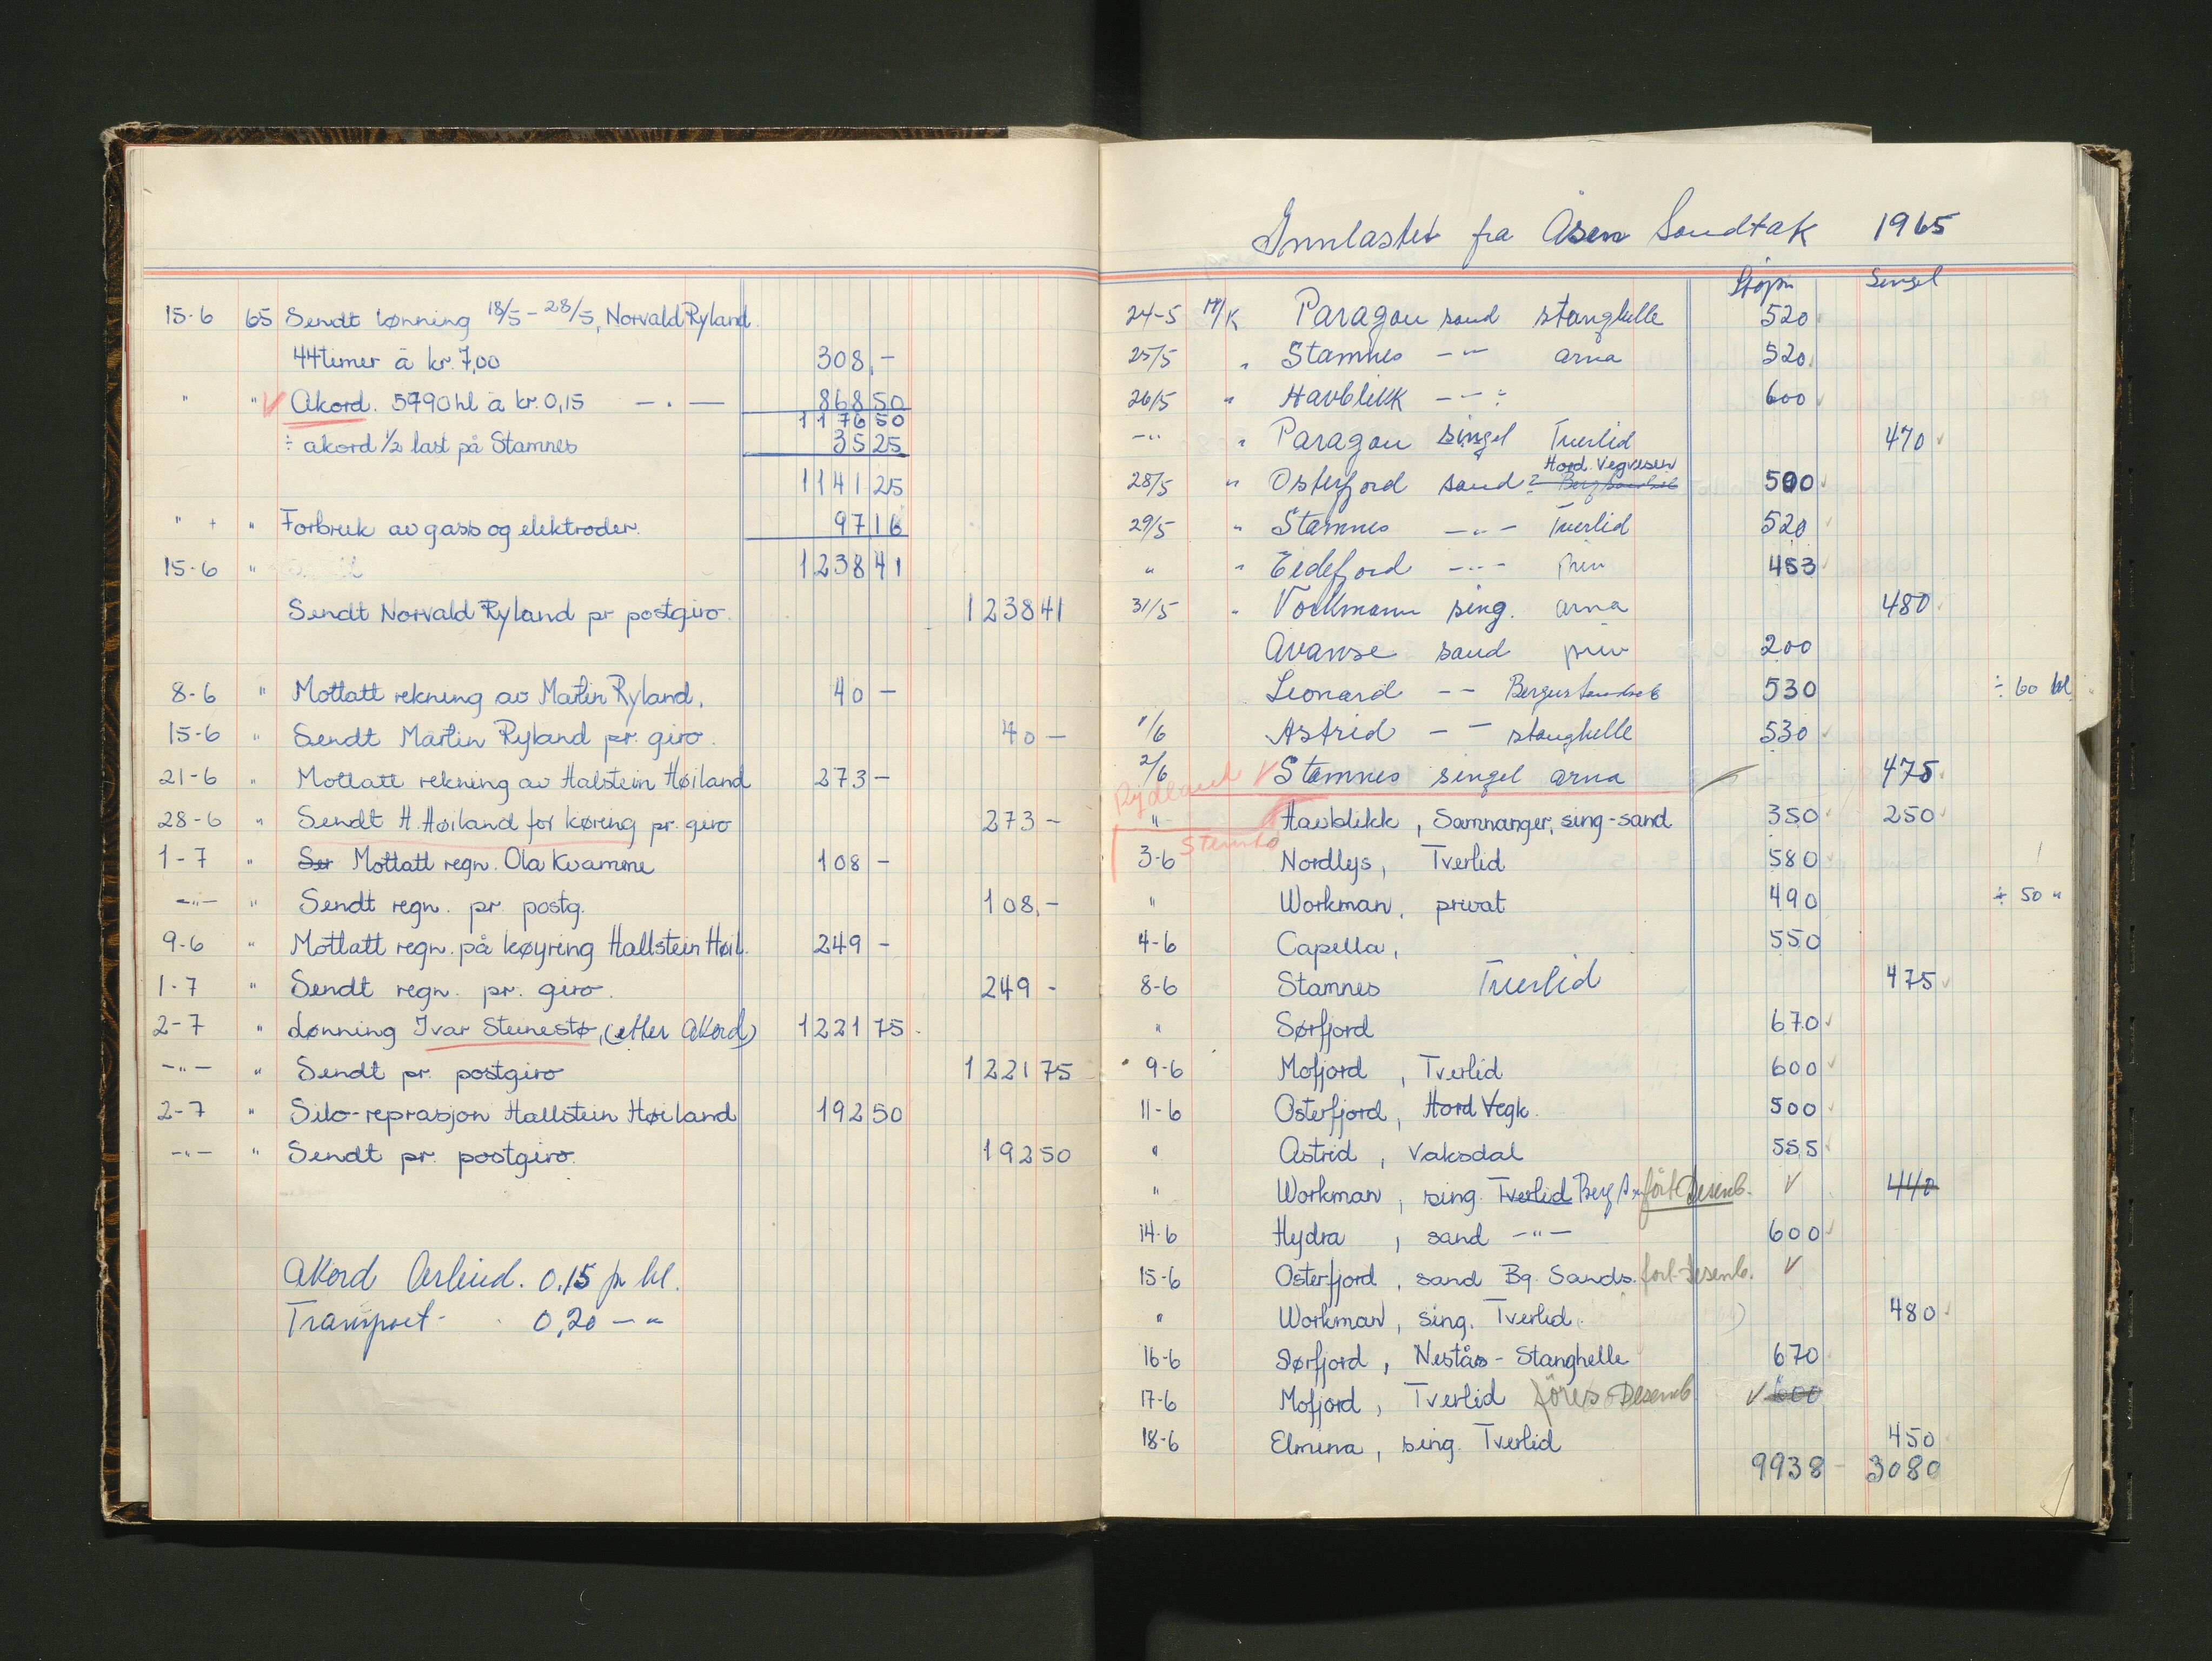 15-6 65 Sendt lønning 18/5 - 28/5, Norvald Ryland.
44 timer à kr. 7,00 308,-
" " V Akord. 5790 hl à kr. 0,15 — . — 868 50
1176 50
÷ akord 1/2 last på Stamnes 35 25
1141 25
" + " Forbruk av gass og elektroder. 97 16
15-6 " 1238 41
Sendt Norvald Ryland pr postgiro. 1238 41
8-6 " Mottatt rekning av Martin Ryland. 40 -
15-6 " Sendt Martin Ryland pr. giro. 40 —
21-6 " Mottatt rekning av Halstein Høiland 273 -
28-6 " Sendt H. Høiland for køring pr. giro 273 -
1-7 " Ser Mottatt regn. Ola Kvamme 108 -
-"- " Sendt regn. pr. postg. 108,-
9-6 " Mottatt regn. på køyring Hallstein Høil. 249 -
1-7 " Sendt regn. pr. giro. 249 -
2-7 " Lønning Ivar Steinestø, (etter Akord) 1221 75
-"- " Sendt pr. postgiro 1221 75
2-7 " Silo-reprasjon Hallstein Høiland 192 50
-"- " Sendt pr. postgiro. 192 50
Akord Arbeid. 0,15 pr hl.
Transport - 0,20 — "
Innlastet fra Åsen Sandtak 1965
Støpn Singel
24-5 M/K Paragon sand Stanghelle 520
25/5 " Stamnes - " - Arna 520
26/5 " Havblikk - " - 600
-"- " Paragon singel Tverlid 470
Hord. Vegvesen
28/5 " Osterfjord sand 500
29/5 " Stamnes - " - Tverlid 520
" " Eidefjord - " - priv 453
31/5 " Vorkmann sing. Arna 480
Avanse sand priv 200
Leonard - - Bergens Sandsels 530 ÷ 60 hl
1/6 Astrid - - Stanghelle 530
2/6 V Stamnes singel Arna 475
Rydland
" Havblikk, Samnanger, sing-sand 350 250
Steinstø
3-6 Nordlys, Tverlid 580
" Workman, privat 490 ÷ 50 "
4-6 Capella, 550
8-6 Stamnes Tverlid 475
" Sørfjord 670
9-6 Mofjord, Tverlid 600
11-6 Osterfjord, Hord Vegk. 500
" Astrid, Vaksdal 555
" Workman, sing. Tverlid Berg ført Desemb. V 440
14-6 Hydra, sand -"- 600
15-6 Osterfjord, sand Bg. Sands. ført Desemb. V
" Workman, sing. Tverlid. 480
16-6 Sørfjord, Nestås - Stanghelle 670
17-6 Mofjord, Tverlid føres Desemb V 600
18-6 Elmina, sing. Tverlid 450
9938 - 3080